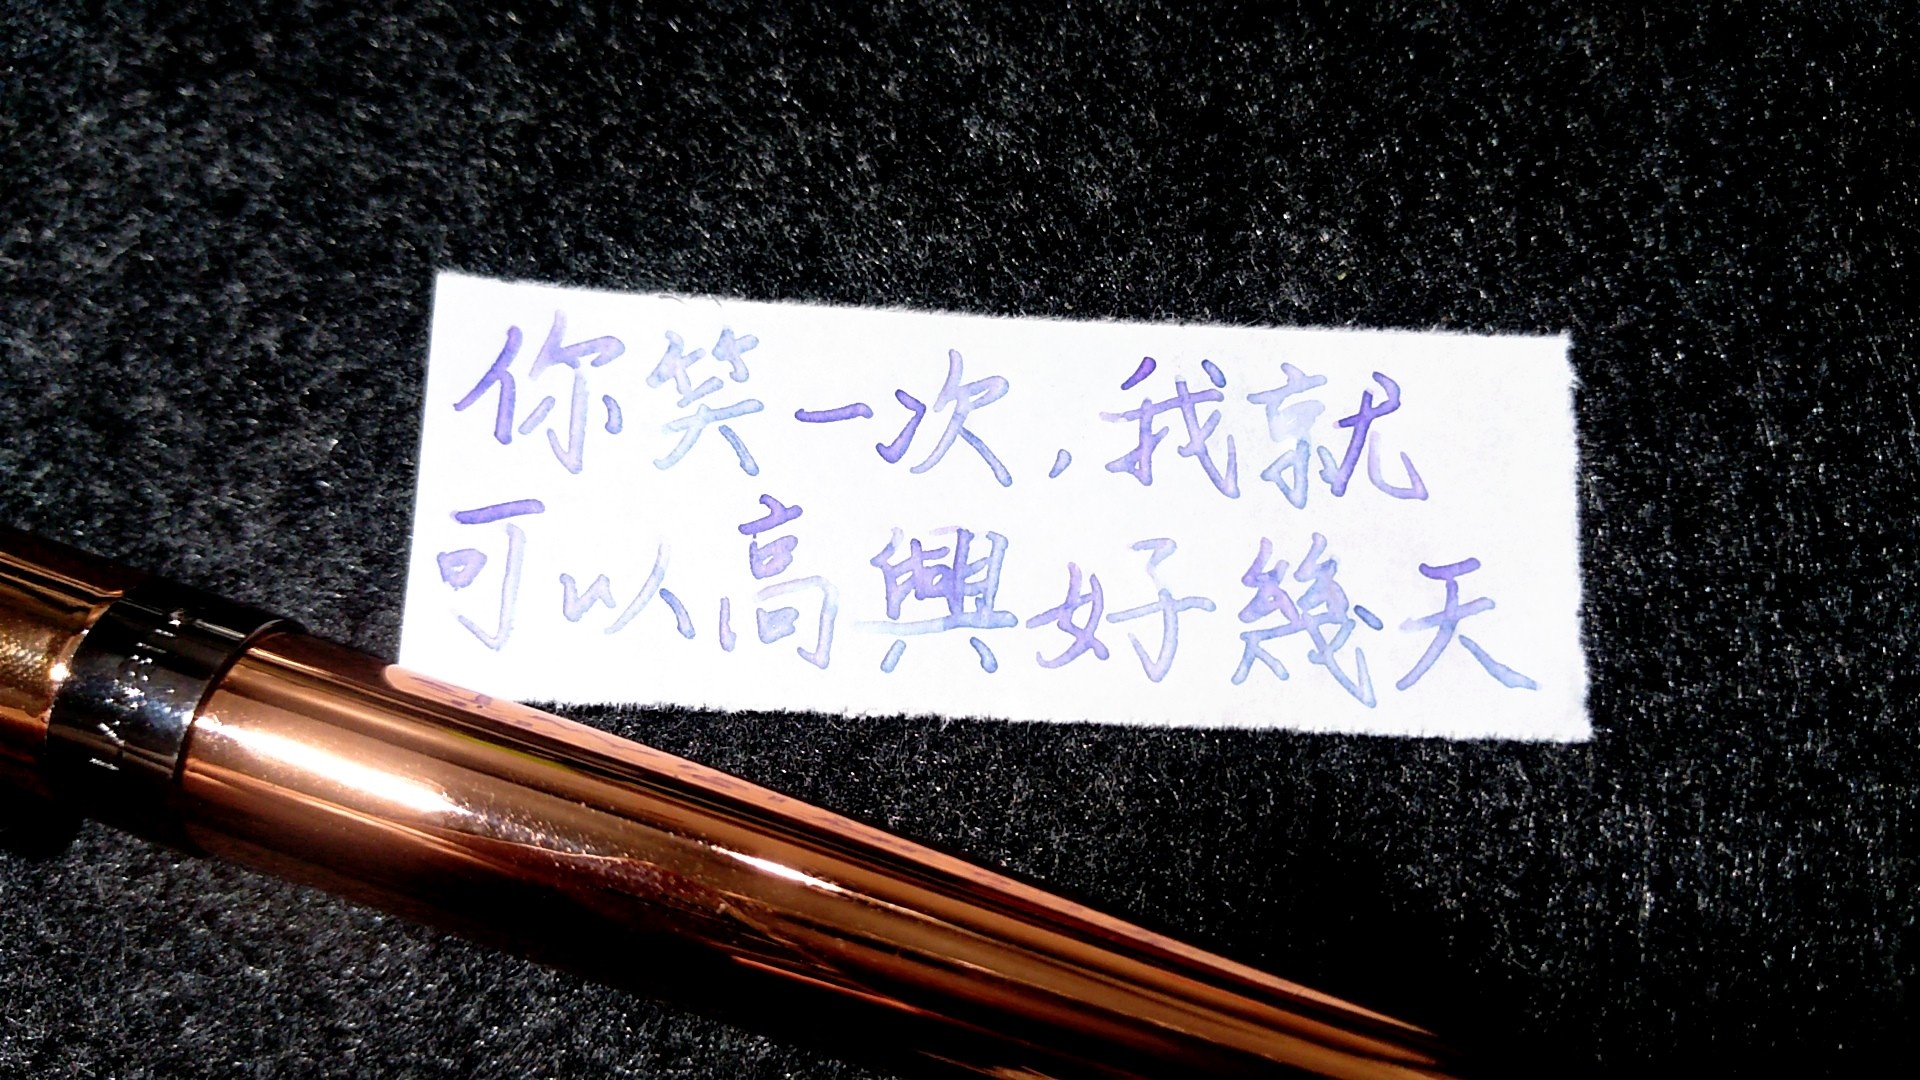 你笑一次,我就
可以高興好幾天